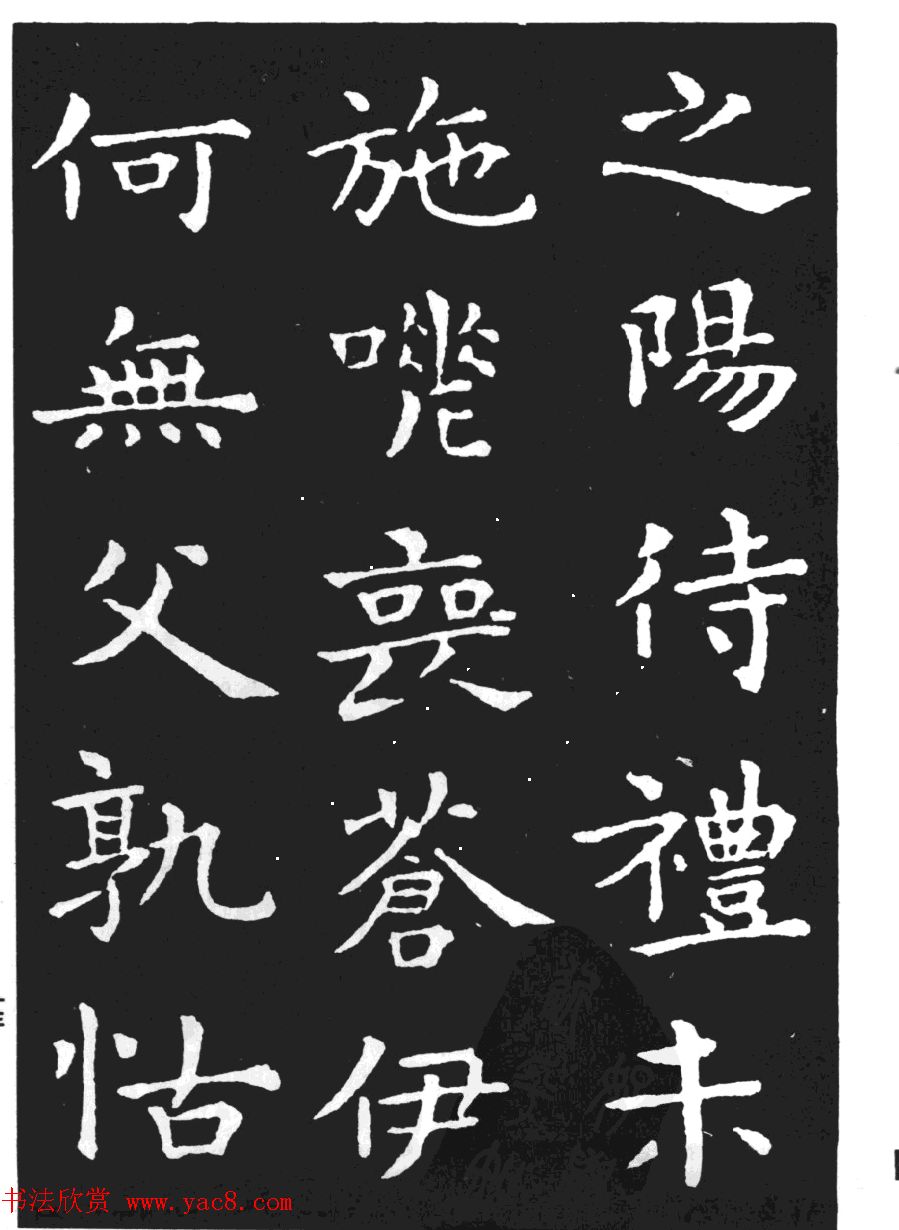 之陽待禮未
施嘫喪蒼伊
何無父孰怙
书法欣赏 www.yac8.com